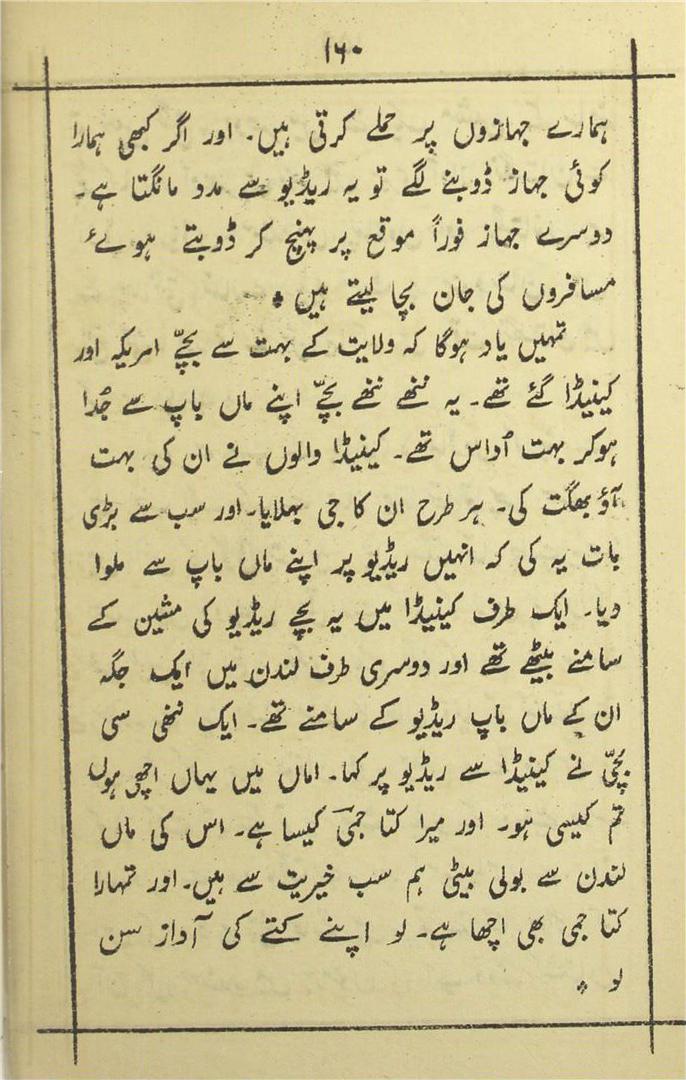 ۱۶۰
ہمارے جہازوں پر حملے کرتی ہیں۔ اور اگر کبھی ہمارا
کوئی جہاز ڈوبنے لگے تو یہ ریڈیو سے مدد مانگتا ہے۔
دوسرے جہاز فوراً موقع پر پہنچ کر ڈوبتے ہوئے
مسافروں کی جان بچا لیتے ہیں *
تمہیں یاد ہوگا کہ ولایت کے بہت سے بچّے امریکہ اور
کینیڈا گئے تھے۔ یہ ننھے ننھے بچّے اپنے ماں باپ سے جُدا
ہوکر بہت اُداس تھے۔ کینیڈا والوں نے ان کی بہت
آؤ بھگت کی۔ ہر طرح ان کا جی بہلایا۔ اور سب سے بڑی
بات یہ کی کہ انہیں ریڈیو پر اپنے ماں باپ سے ملوا
دیا۔ ایک طرف کینیڈا میں یہ بچے ریڈیو کی مشین کے
سامنے بیٹھے تھے اور دوسری طرف لندن میں ایک جگہ
ان کے ماں باپ ریڈیو کے سامنے تھے۔ ایک ننھی سی
بچّی نے کینیڈا سے ریڈیو پر کہا۔ اماں میں یہاں اچھی ہوں
تم کیسی ہو۔ اور میرا کتا جمی کیسا ہے۔ اس کی ماں
لندن سے بولی بیٹی ہم سب خیریت سے ہیں۔ اور تمہارا
کتا جمی بھی اچھا ہے۔ لو اپنے کتے کی آواز سن
لو *